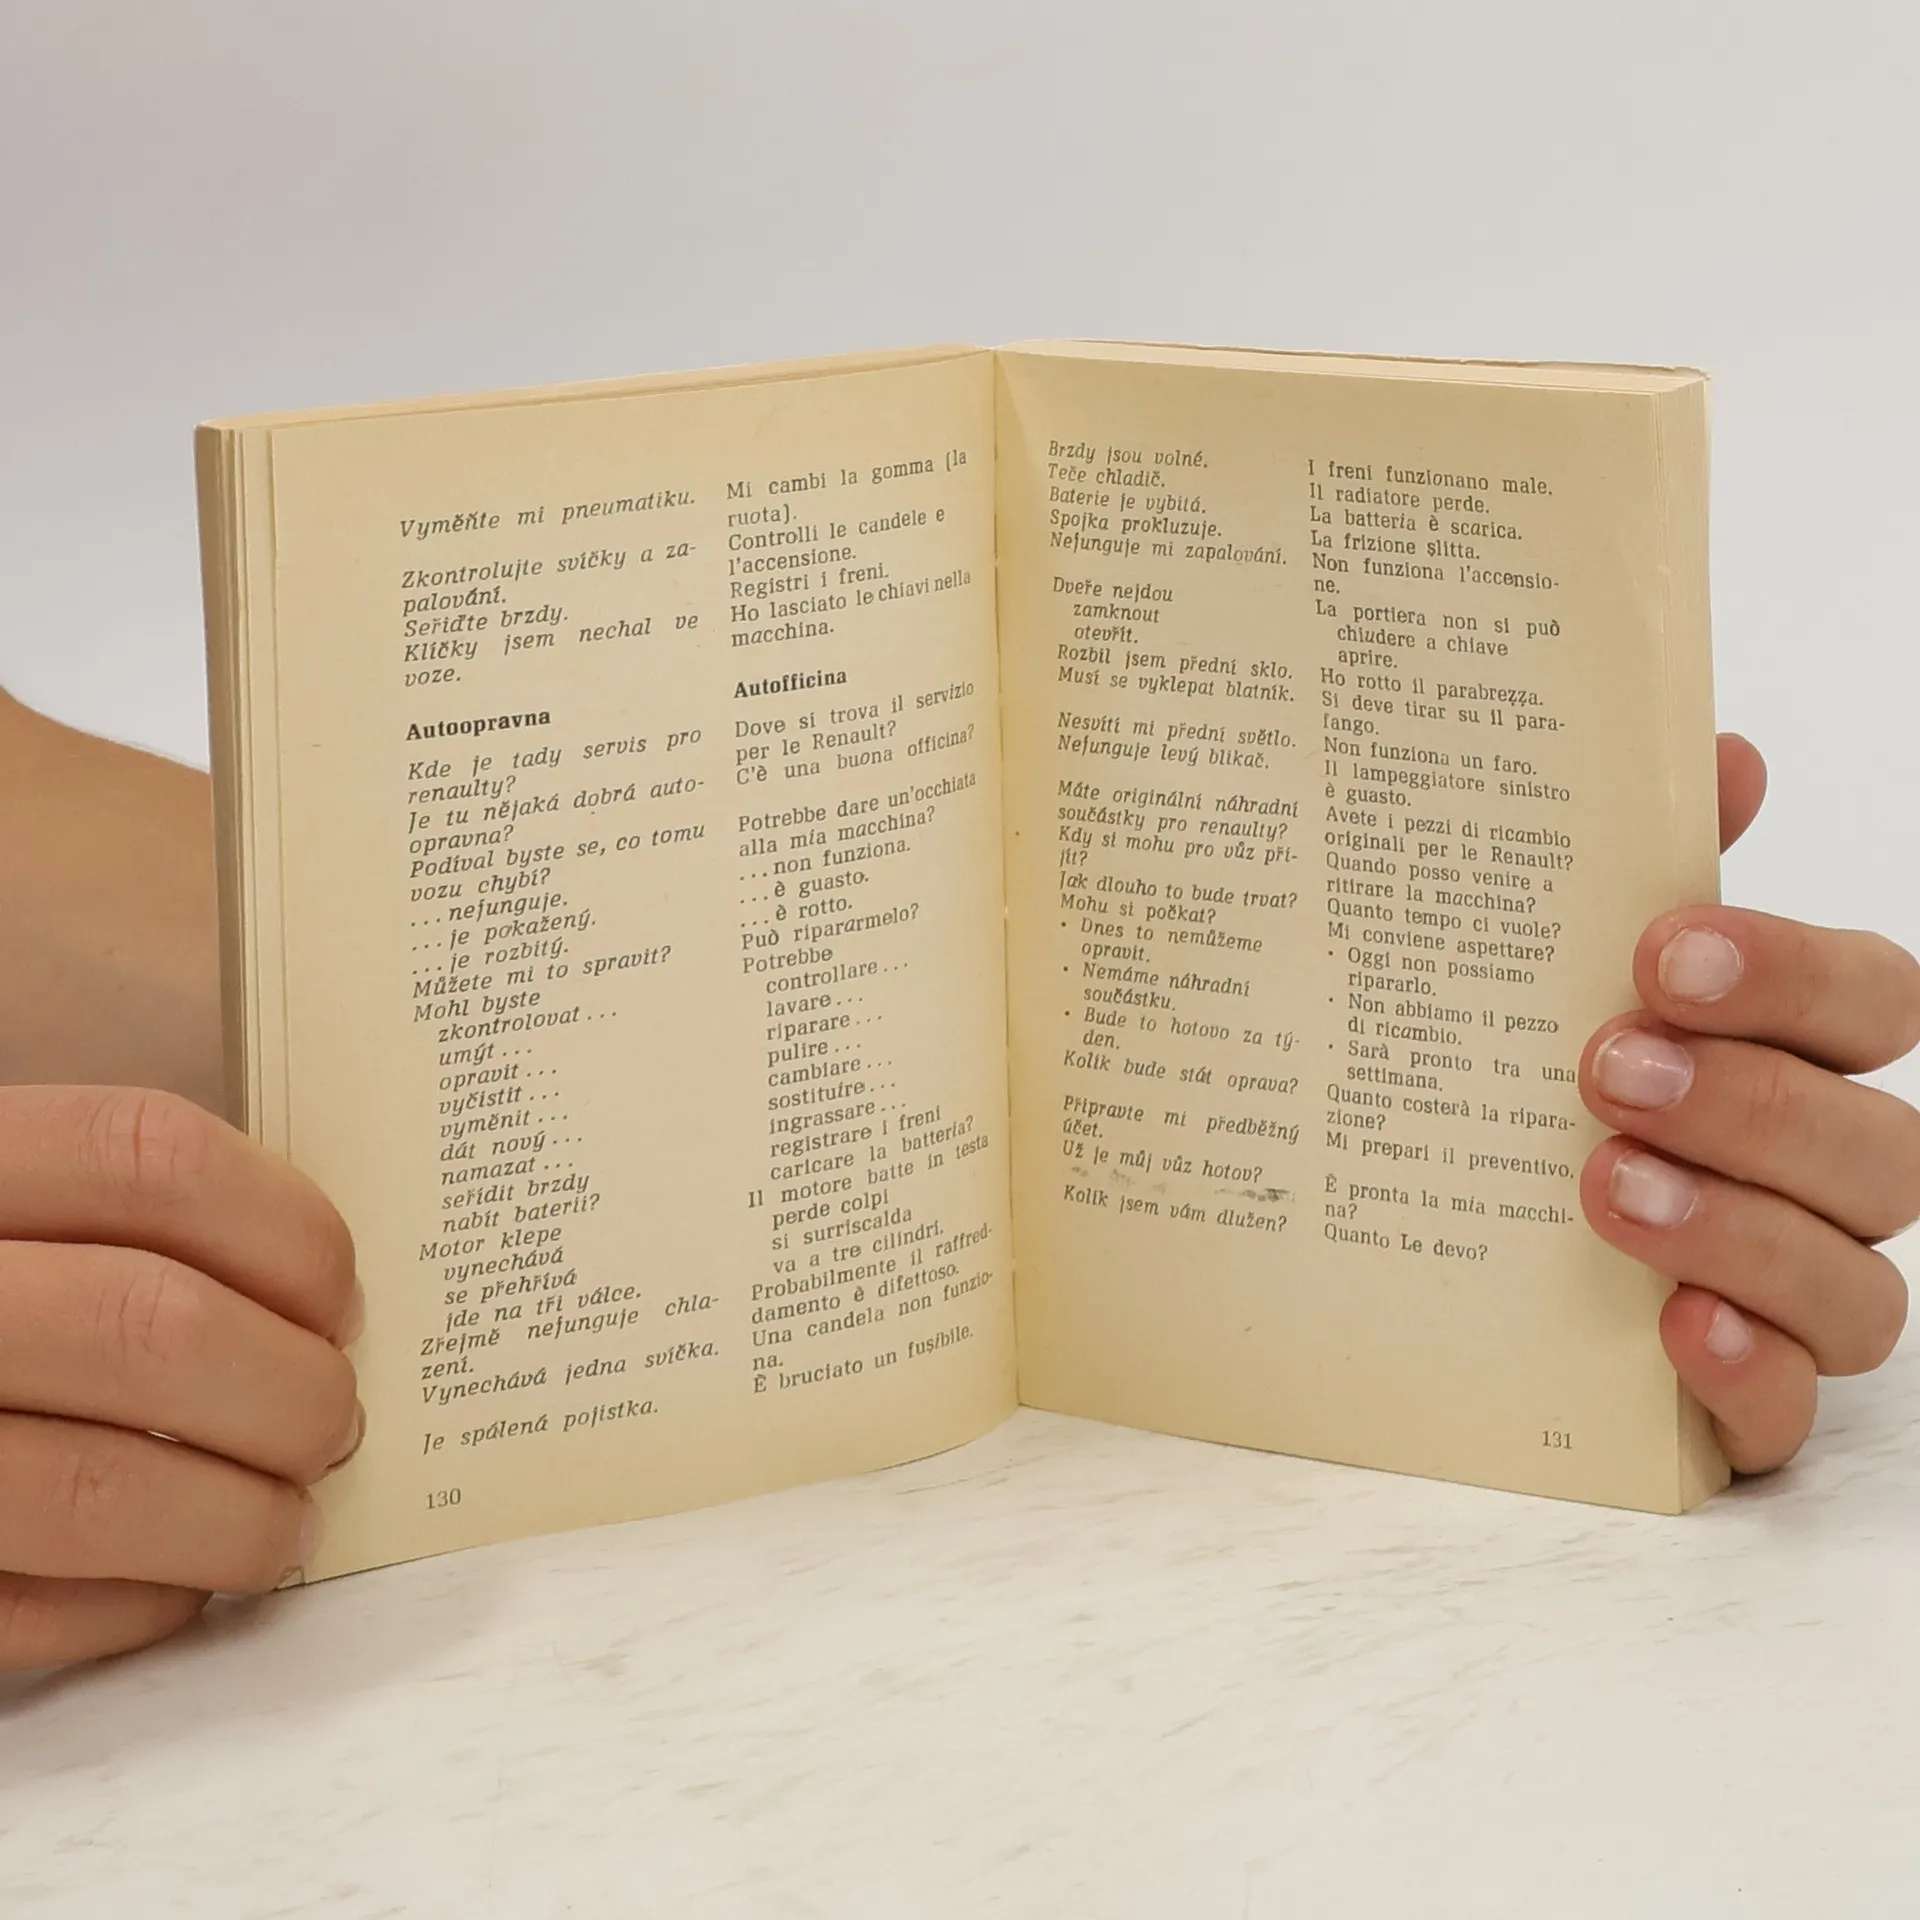 Vyměňte mi pneumatiku.
Zkontrolujte svíčky a za-
palování.
Seřiďte brzdy.
Klíčky jsem nechal ve
voze.
Autoopravna
Kde je tady servis pro
renaulty?
Je tu nějaká dobrá auto-
opravna?
Podíval byste se, co tomu
vozu chybí?
...nefunguje.
...je pokažený.
...je rozbitý.
Můžete mi to spravit?
Mohl byste
zkontrolovat...
umýt...
opravit...
vyčistit...
vyměnit...
dát nový...
namazat...
seřídit brzdy
nabít baterii?
Motor klepe
vynechává
se přehřívá
jde na tři válce.
Zřejmě nefunguje chla-
zení.
Vynechává jedna svíčka.
Je spálená pojistka.
130
Mi cambi la gomma (la
ruota).
Controlli le candele e
l'accensione.
Registri i freni.
Ho lasciato le chiavi nella
macchina.
Autofficina
Dove si trova il servizio
per le Renault?
C'è una buona officina?
Potrebbe dare un'occhiata
alla mia macchina?
...non funziona.
...è guasto.
...è rotto.
Può ripararmelo?
Potrebbe
controllare...
lavare...
riparare...
pulire...
cambiare...
sostituire...
ingrassare...
registrare i freni
caricare la batteria?
Il motore batte in testa
perde colpi
si surriscalda
va a tre cilindri.
Probabilmente il raffred-
damento è difettoso.
Una candela non funzio-
na.
È bruciato un fusibile.
Brzdy jsou volné.
Teče chladič.
Baterie je vybitá.
Spojka prokluzuje.
Nefunguje mi zapalování.
Dveře nejdou
zamknout
otevřít.
Rozbil jsem přední sklo.
Musí se vyklepat blatník.
Nesvítí mi přední světlo.
Nefunguje levý blikač.
Máte originální náhradní
součástky pro renaulty?
Kdy si mohu pro vůz při-
jít?
Jak dlouho to bude trvat?
Mohu si počkat?
• Dnes to nemůžeme
opravit.
• Nemáme náhradní
součástku.
• Bude to hotovo za tý-
den.
Kolik bude stát oprava?
Připravte mi předběžný
účet.
Už je můj vůz hotov?
Kolik jsem vám dlužen?
I freni funzionano male.
Il radiatore perde.
La batteria è scarica.
La frizione slitta.
Non funziona l'accensio-
ne.
La portiera non si può
chiudere a chiave
aprire.
Ho rotto il parabrezza.
Si deve tirar su il para-
fango.
Non funziona un faro.
Il lampeggiatore sinistro
è guasto.
Avete i pezzi di ricambio
originali per le Renault?
Quando posso venire a
ritirare la macchina?
Quanto tempo ci vuole?
Mi conviene aspettare?
• Oggi non possiamo
ripararlo.
• Non abbiamo il pezzo
di ricambio.
• Sarà pronto tra una
settimana.
Quanto costerà la ripara-
zione?
Mi prepari il preventivo.
È pronta la mia macchi-
na?
Quanto Le devo?
131